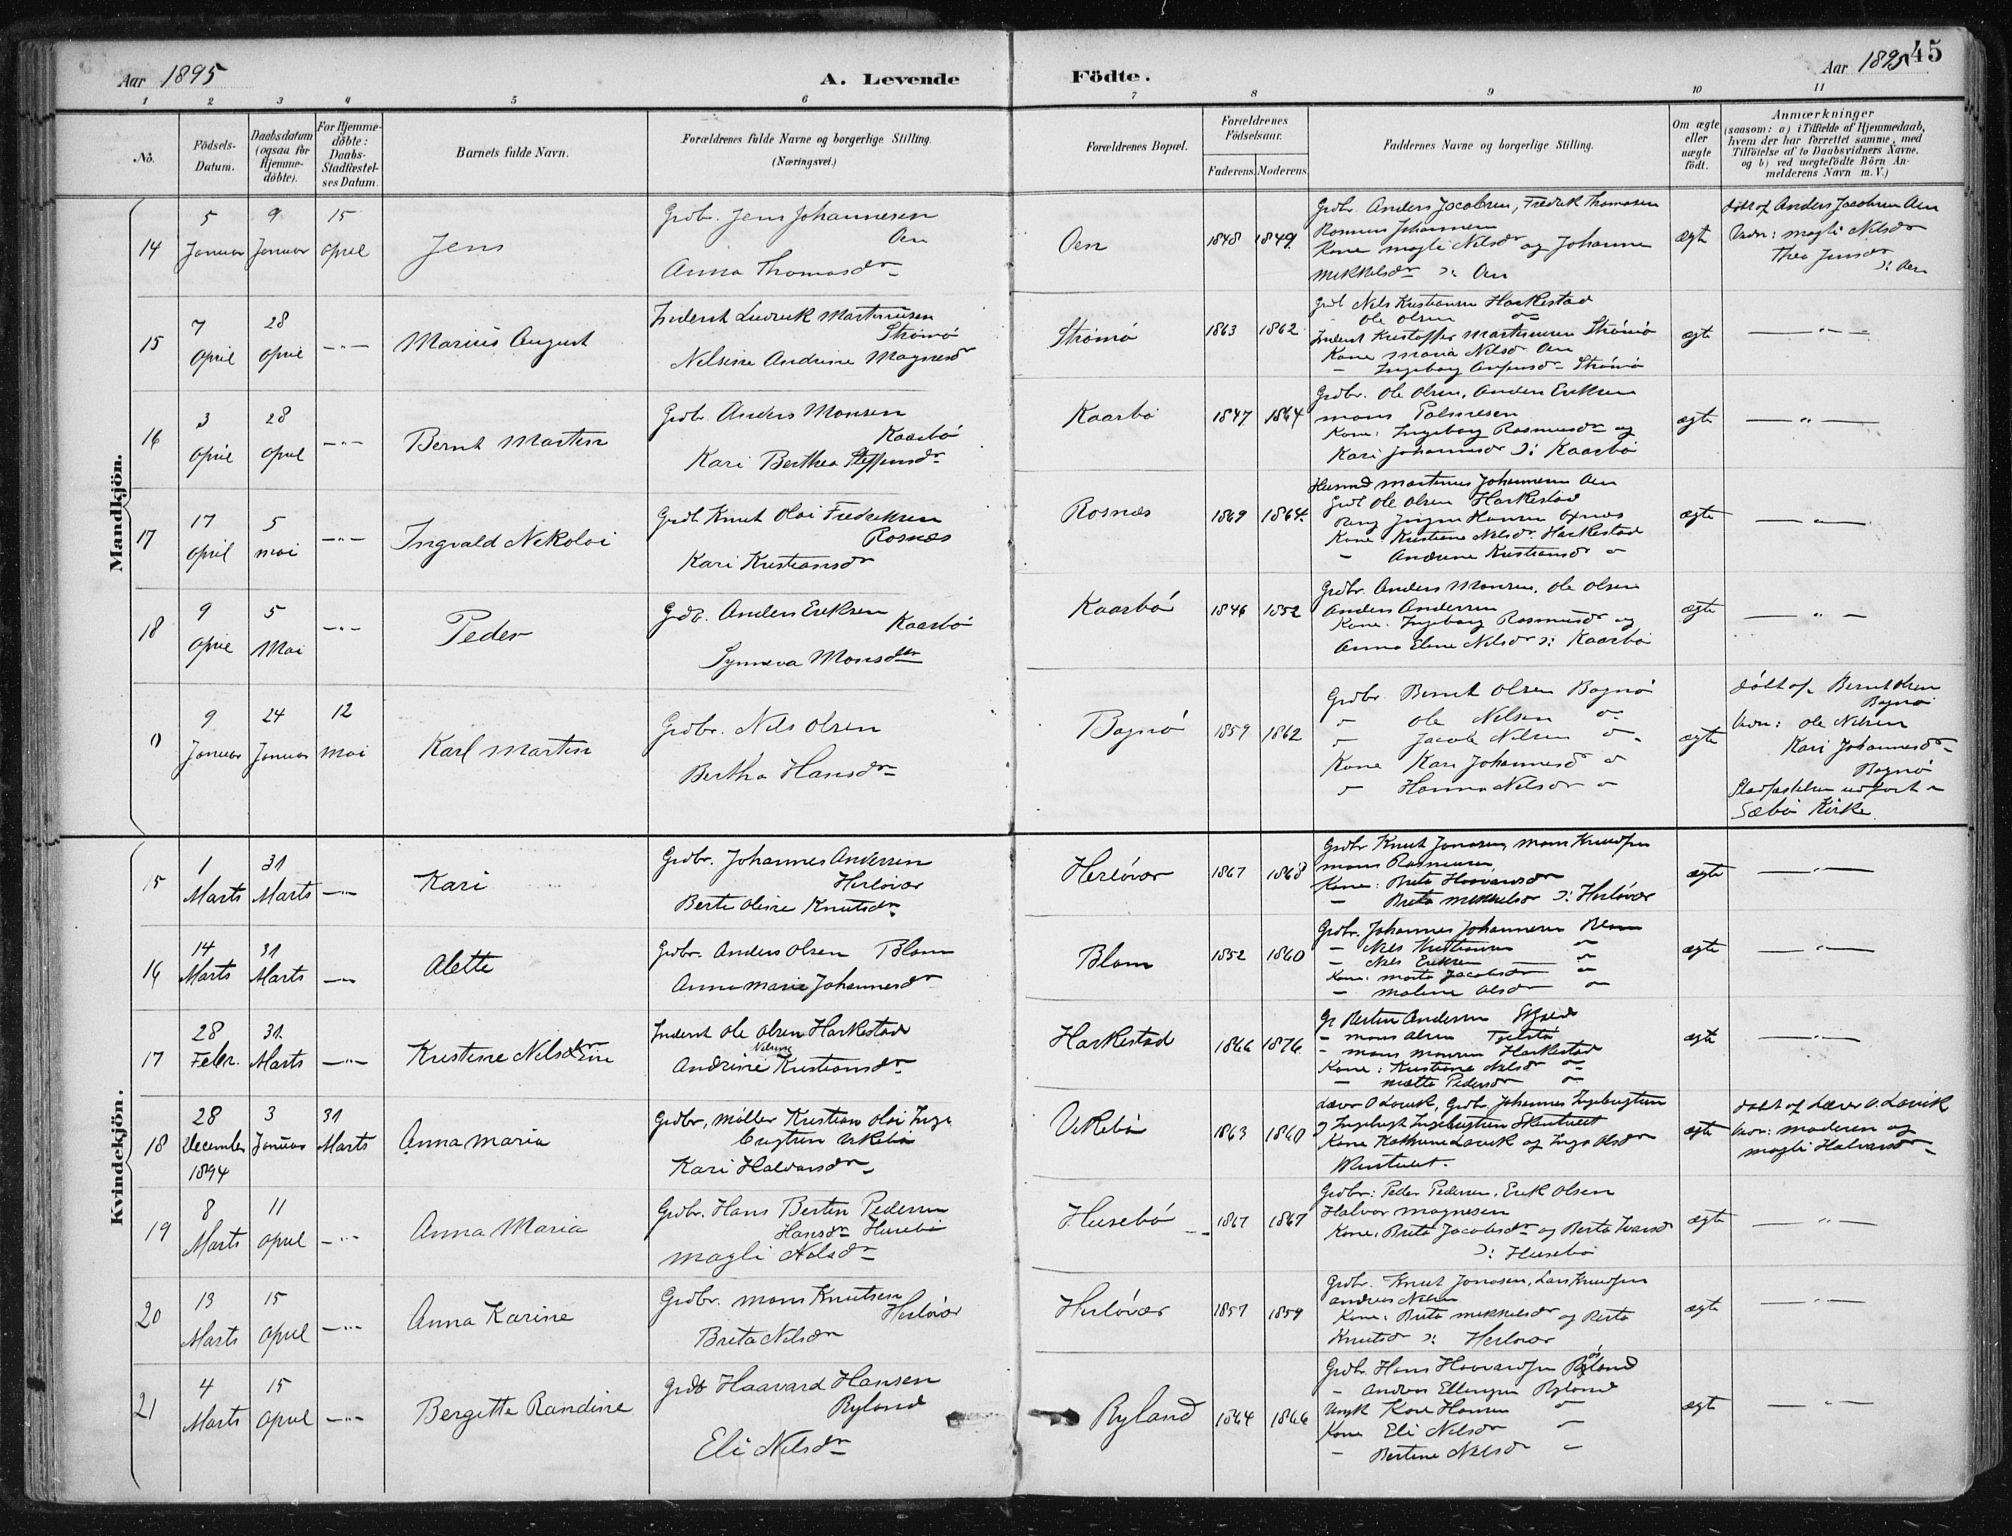 Aar 1895
A. Levende
Födte.
Aar 1895
45
1 2 3 4 5 6 7 8 9 10 11
No.
Födsels-Datum.
Daabsdatum (ogsaa for Hjemme-döbte).
For Hjemme-döbte: Daabs-Stadfæstel-ses Datum.
Barnets fulde Navn.
Forældrenes fulde Navne og borgerlige Stilling.
(Næringsvei.)
Forældrenes Bopæl.
Forældrenes Födselsaar.
Faderens. Moderens.
Faddernes Navne og borgerlige Stilling.
Om ægte eller uægte födt.
Anmærkninger
(saasom: a) i Tilfælde af Hjemmedaab, hvem der har forrettet samme, med Tilföielse af to Daabsvidners Navne, og b) ved uægtefödte Börn An-melderens Navn m. V.)
Mandkjön.
14
5 Januar
9 Januar
15 April
Jens
Grdbr. Jens Johannesen
Øen
Anna Thomasdr
Øen
1848 1849
Grdbr. Anders Jacobsen, Fredrik Thomasen
Rasmus Johannesen
Kone Magli Nilsdr og Johanne
Mikkelsdr ɔ: Øen
ægte
döbt af Anders Jacobsen Øen
Vidn: Magli Nilsdr
Thea Jensdr
ɔ: Øen
15
7 April
28 April
— " —
Marius August
Inderst Ludvik Martinusen
Strömö
Nelsine Andrine Magnesdr
Strömö
1863 1862
Grdb Nils Kristiansen Harkestad
- Ole Olsen
Inderst Kristoffer Martinusen Strömö
Kone Maria Nilsdr Øen
- Ingeborg Strömö
ægte
— " —
16
3 April
28 April
— " —
Bernt Martin
Grdbr Anders Monsen
Kaarbö
Kari Berthea Steffensdr
Kaarbö
1847 1864
Grdbr. Ole Olsen, Anders Eriksen
Mons
Kone: Ingeborg Rasmusdr og
Kari Johannesdr ɔ: Kaarbö
ægte
— " —
17
17 April
5 Mai
— " —
Ingvald Nikolai
Grdb. Knut Olai Fredriksen
Rosnæs
Kari Kristiansdr
Rosnæs
1869 1864
Husmd Martinus Johannesen Øen
Grdb Ole Olsen Harkestad
Kone: Kristine Nilsdr Harkestad
- Andrine Kristiansdr
ægte
— " —
18
9 April
5 Mai
— " —
Peder
Grdb. Anders Eriksen
Kaarbö
Synneva Monsdtr
Kaarbö
1846 1852
Grdbr. Anders Monsen, Ole Olsen
Anders Andersen
Kone: Ingeborg Rasmusdr og
Anna Elene Nilsdr ɔ: Kaarbö
ægte
— " —
0
9 Januar
24 Januar
12 Mai
Karl Martin
Grdbr. Nils Olsen
Bertha Hansdr
Bognö
1859 1862
Grdbr. Bernt Olsen Bognö
" Ole Nilsen "
" Jacob Nilsen "
Kone Kari Johannesdr "
" Hanna Nilsdr "
ægte
döbt af Bernt Olsen
Bognö
Vidn: Ole Nilsen
Kari Johannesdr
Bognö
Stadfæstelsen udfört i
Sæbö Kirke.
Kvindekjön.
15
1 Marts
31 Marts
— " —
Kari
Grdbr. Johannes Andersen
Herlövær
Berte Oline Knutsdr
Herlövær
1867 1868
Grdbr Knut Jonasen, Mons Knudsen
Mons Rasmusen
Kone: Brita Haavardsdr
- Brita Mikkelsdr ɔ: Herlövær
ægte
— " —
16
14 Marts
31 Marts
— " —
Alette
Grdbr. Anders Olsen Blom
Anna Marie Johannesdr
Blom
1852 1860
Grdbr. Johannes Johannesen Blom
- Nils Kristiansen "
- Nils Eriksen "
Kone: Marta Jacobsdr "
- Malene Olsdr "
ægte
— " —
17
28 Febr.
31 Marts
— " —
Kristine Nilsdr
Inderst Ole Olsen Harkestad
Nilsine
Andrine Kristiansdr
Harkestad
1866 1876
Gr Bertin Andersen
- Mons Olsen
- Mons Monsen Harkestad
Kone: Kristine Nilsdr "
- Mette Pedersdr "
ægte
— " —
18
28 December 1894
3 Januar
31 Marts
Anna Maria
Grdbr, Möller Kristian Olai Inge
brigtsen Vikebö
Kari Halvorsdr
Vikebö
1863 1860
Lærer O Lavik, Grdbr Johannes Ingebrigtsen
og Ingebrigt Ingebrigtsen
Kone Kathrine Lavik og Inga Olsdr
ægte
döbt af Lærer O. Lavik
Vidn: Moderen og
Magli Halvorsdr
19
8 Marts
11 April
— " —
Anna Maria
Grdbr. Hans Bertin Pedersen
Hansdr Husebö
Magli Nilsdr
Husebö
1867 1867
Grdbr: Peder Pedersen, Erik Olsen
Halvor Magnesen
Kone, Brita Jacobsdr og Berta Ivarsd
ɔ: Husebö
ægte
— " —
20
13 Marts
15 April
— " —
Anna Karine
Grdbr. Mons Knutsen
Herlövær
Brita Nilsdr
Herlövær
1857 1859
Grdbr. Knut Jonasen, Lars Knudsen
Andreas Nilsen
Kone: Brita Mikkelsdr og Berta
Knutsd ɔ: Herlövær
ægte
— " —
21
4 Marts
15 April
— " —
Bergitte Randine
Grdb Haavard Hansen
Ryland
Eli Nilsdr
Ryland
1864 1866
Grdbr. Hans Haavardsen
- Anders Ellingsen Ryland
Ungk Kore Hansen "
Kone Eli Nilsdr "
- Bertine Nilsdr "
ægte
— " —